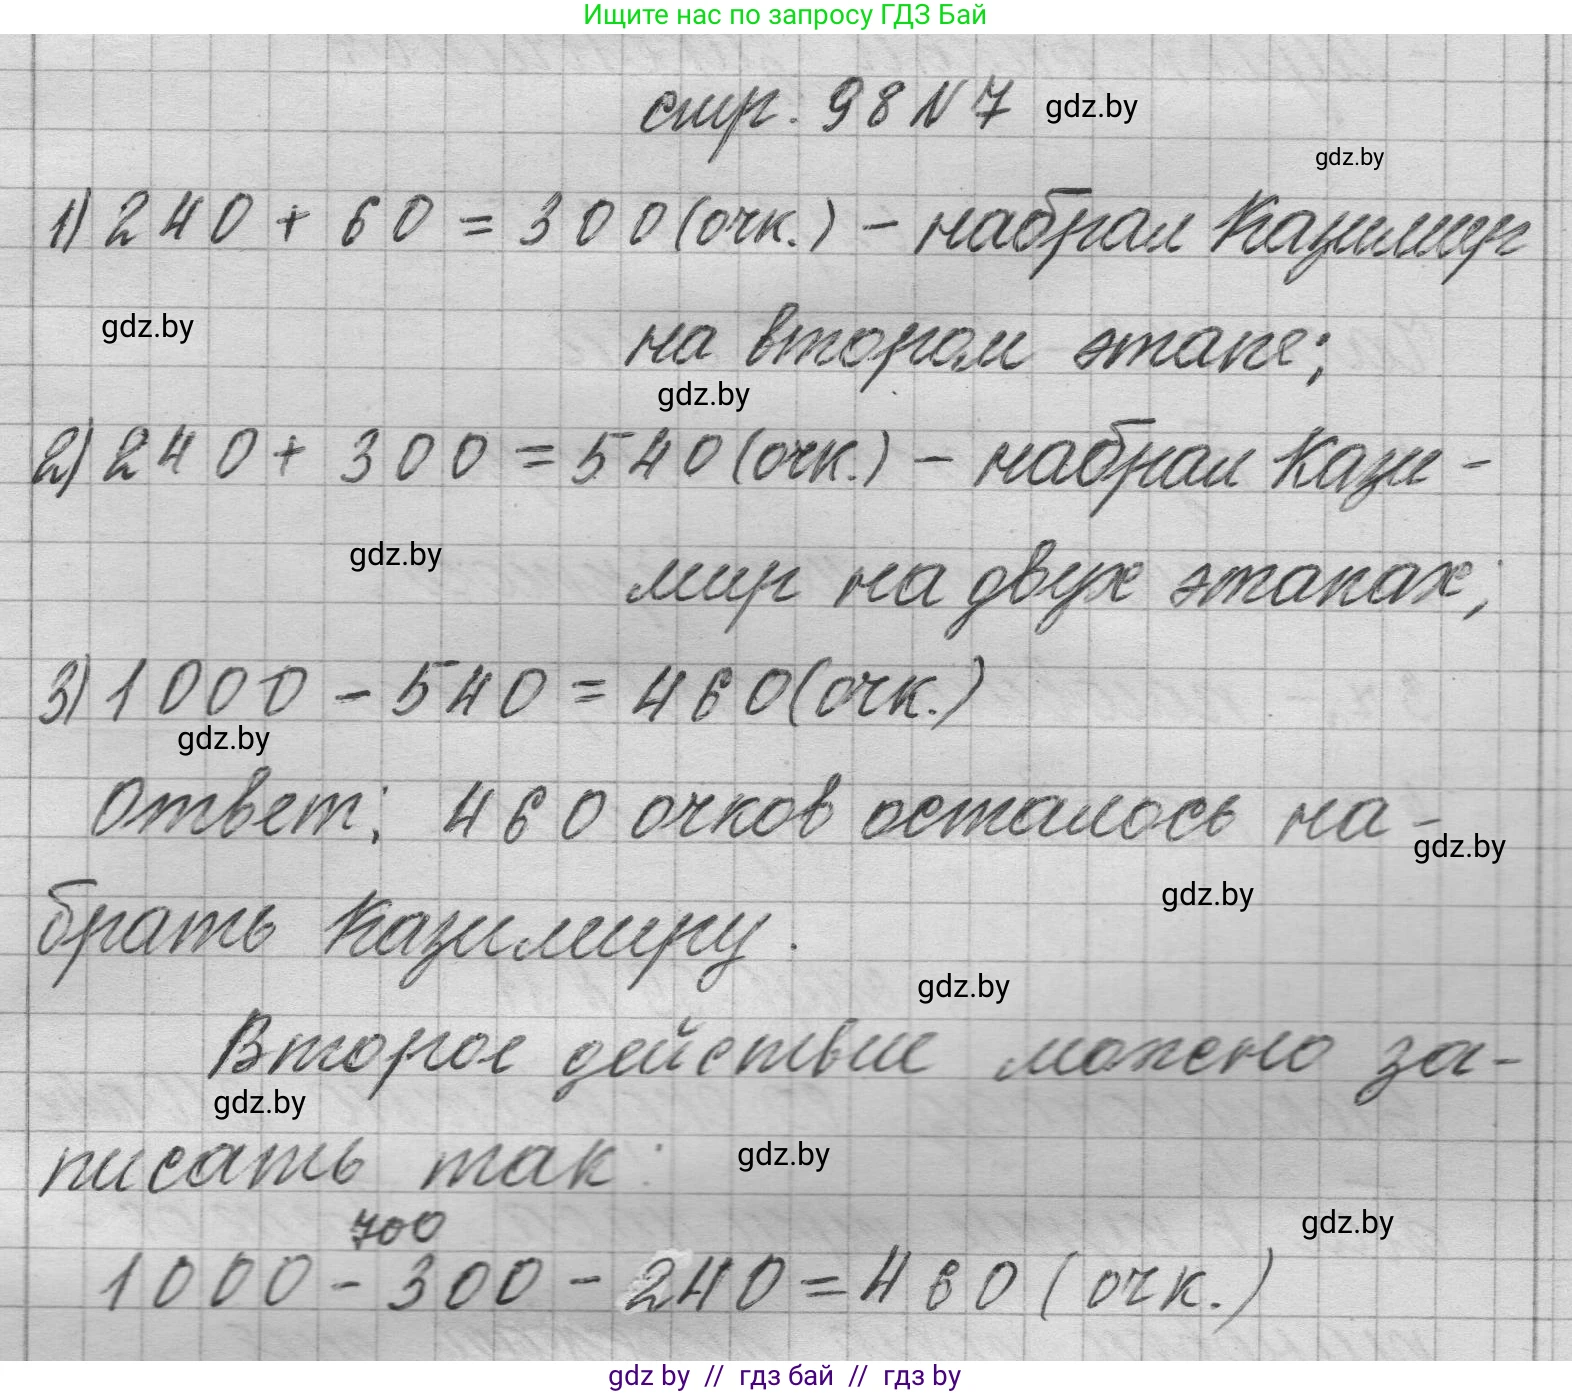 Ищите нас по запросу ГДЗ Бай
стр. 98 N 7 gdz.by
gdz.by
1) 240 + 60 = 300 (очк.) – набрал Казимир
gdz.by
на втором этапе;
gdz.by
2) 240 + 300 = 540 (очк.) – набрал Кази-
gdz.by
мир на двух этапах;
3) 1000 – 540 = 460 (очк.)
gdz.by
Ответ: 460 очков осталось на-
gdz.by
gdz.by
брать Казимиру.
gdz.by
Второе действие можно за-
gdz.by
писать так:
gdz.by
700
gdz.by
1000 – 300 – 240 = 460 (очк.)
gdz by // гдз бай // гдз by